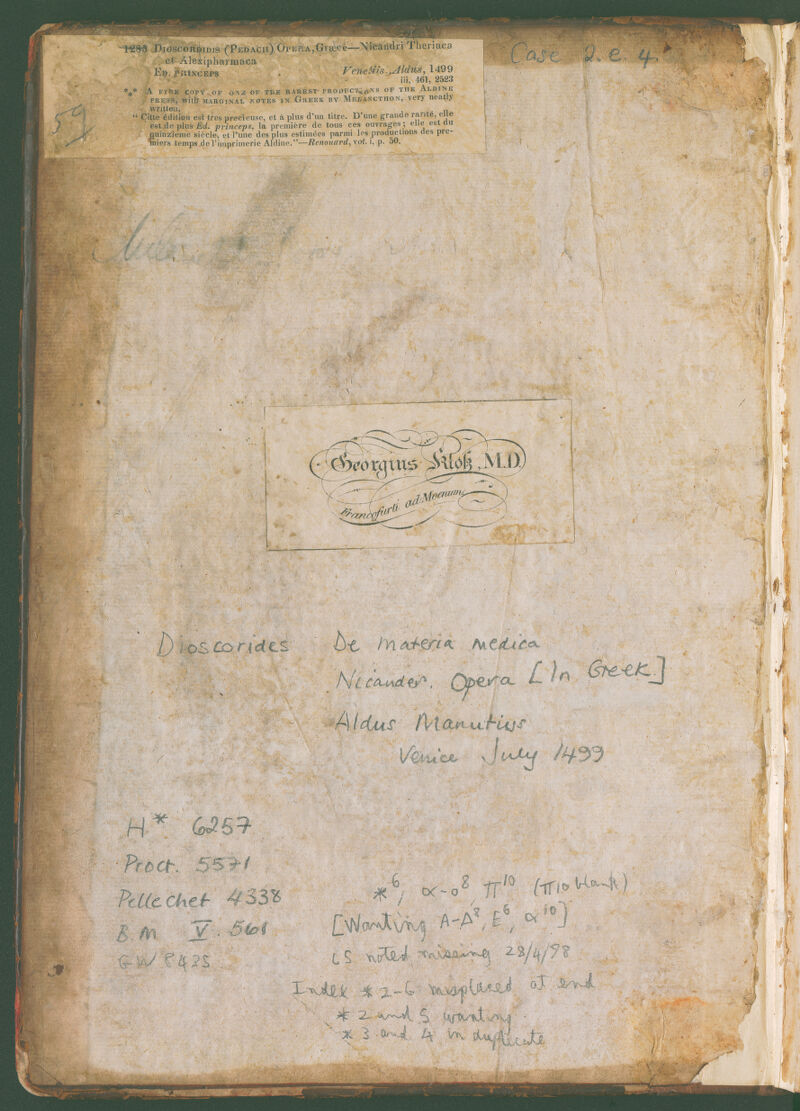 1286 DIOSCORIDIS (PEDACII) OPERA, Græcè—Nicandri Theriaca
et Alexipharmaca
ED. PRINCEPS Venetiis, Aldus, 1499
iii, 461, 2523
*** A FINE COPY OF ONE OF THE RAREST PRODUCTIONS OF THE ALDINE
PRESS, WITH MARGINAL NOTES IN GREEK BY MELANCTHON, very neatly
written.
"Cette édition est très precieuse, et à plus d'un titre. D'une grande rareté, elle
est de plus Ed. princeps, la première de tous ces ouvrages; elle est du
quinzième siècle, et l'une des plus estimées parmi les productions des pre-
miers temps de l'imprimerie Aldine."—Renouard, vol. i, p. 50.
59
Case 2.e.4.
Georgius Kloß, M.D.
Francofurti ad Moenum
Dioscorides De materia medica
Nicander. Opera [In Greek]
Aldus Manutius
Venice July 1499
H* 6257
Proct. 5571
Pellechet 4338
B.M V. 560
GW 8435
*⁶, α-ο⁸ π¹⁰ (π10 blank)
[Wanting Α-Δ⁸, Ε⁶, α¹⁰]
LS noted missing 28/4/98
Index *2-6 misplaced at end
*2 and 5 wanting
*3 and 4 in duplicate